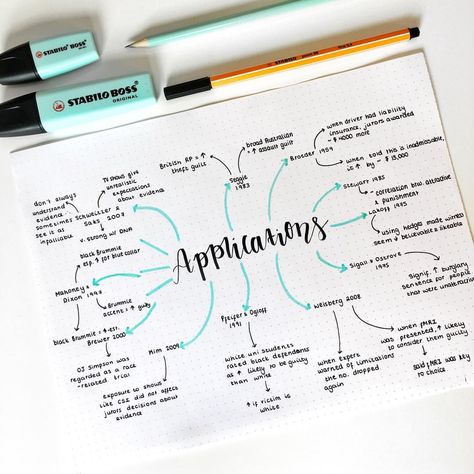 STABILO BOSS
STABILO BOSS
ORIGINAL
Applications
TV shows give
unrealistic
expectations
about evidence
don't always
understand
evidence -
sometimes
see it as
infallible
Schweitzer &
Saks 2007
v. strong w/ DNA
British RP = ↑
thefts guilt
broad Australian
= ↑ assault guilt
1983
Broeder 1959
when driver had liability
insurance, jurors awarded
~ $4000 more
when told this is inadmissable,
it ↑ by ~ $13,000
Stewart 1985
- correlation btw. attractive
& punishment
Lakoff 1975
using hedges made witness
seem ↓ believable & likeable
Sigall & Ostrove
1975
Signif. ↑ burglary
sentence for people
that were unattractive
Weisberg 2008
when fMRI
presented, ↑ likely
to consider them guilty
said fMRI was key
to choice
when expert
warned of limitations
the no. dropped
again
Pfeifer & Ogloff
1991
white uni students
rated black defendants
as ↑ likely to be guilty
than white
↑ if victim is
white
Mim 2009
exposure to shows
like CSI did not affect
jurors decisions about
evidence
Mahoney &
Dixon 1997
black Brummie
esp. ↑ for blue collar
Brummie
accent = ↑ guilty
black Brummie = ↑ est.
Brewer 2000
OJ Simpson was
regarded as a race
related trial